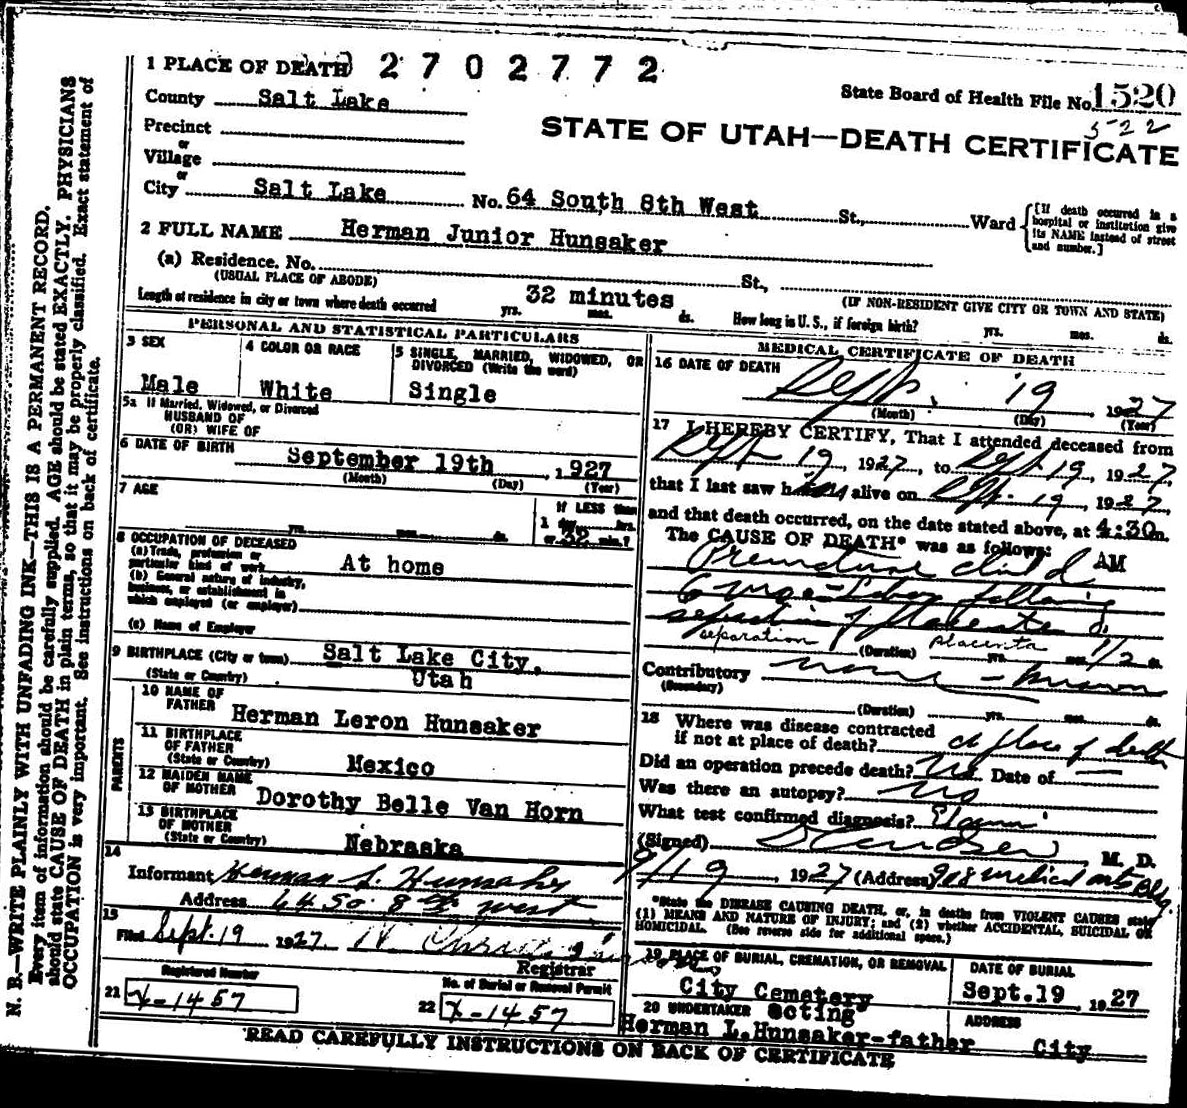 1 PLACE OF DEATH 2702772
State Board of Health File No. 1520
County Salt Lake
522
Precinct
or
Village
or
STATE OF UTAH—DEATH CERTIFICATE
City Salt Lake No. 64 South 8th West St., Ward
[If death occurred in a hospital or institution give its NAME instead of street and number.]
2 FULL NAME Herman Junior Hunsaker
(a) Residence. No. St.,
(USUAL PLACE OF ABODE) (IF NON-RESIDENT GIVE CITY OR TOWN AND STATE)
Length of residence in city or town where death occurred yrs. mos. 32 minutes ds. How long in U. S., if foreign birth? yrs. mos. ds.
PERSONAL AND STATISTICAL PARTICULARS
3 SEX Male
4 COLOR OR RACE White
5 SINGLE, MARRIED, WIDOWED, OR DIVORCED (Write the word) Single
5a If Married, Widowed, or Divorced
HUSBAND OF
(OR) WIFE OF
6 DATE OF BIRTH September 19th, 1927
(Month) (Day) (Year)
7 AGE
yrs. mos. ds.
If LESS than
1 day hrs.
or 32 min.?
8 OCCUPATION OF DECEASED
(a) Trade, profession or
particular kind of work At home
(b) General nature of industry,
business, or establishment in
which employed (or employer)
(c) Name of Employer
9 BIRTHPLACE (City or town) Salt Lake City,
(State or Country) Utah
PARENTS
10 NAME OF FATHER Herman Leron Hunsaker
11 BIRTHPLACE OF FATHER
(State or Country) Mexico
12 MAIDEN NAME OF MOTHER Dorothy Belle Van Horn
13 BIRTHPLACE OF MOTHER
(State or Country) Nebraska
14
Informant Herman L. Hunsaker
Address 64 So. 8th West
15
Filed Sept. 19 1927
Registrar
Registered Number
21 X-1457
No. of Burial or Removal Permit
22 X-1457
MEDICAL CERTIFICATE OF DEATH
16 DATE OF DEATH
Sept. 19, 1927
(Month) (Day) (Year)
17 I HEREBY CERTIFY, That I attended deceased from
Sept 19, 1927, to Sept 19, 1927,
that I last saw him alive on Sept. 19, 1927,
and that death occurred, on the date stated above, at 4:30 m.
The CAUSE OF DEATH* was as follows: AM
Premature child
6 mos - Labor following
separation of placenta
separation placenta
(Duration) yrs. mos. 1/2 ds.
Contributory none - known
(Secondary)
(Duration) yrs. mos. ds.
18 Where was disease contracted
if not at place of death? at place of death
Did an operation precede death? No Date of —
Was there an autopsy? No
What test confirmed diagnosis?
(Signed) M. D.
9/19, 1927 (Address) 908 Medical Arts Bldg.
*State the DISEASE CAUSING DEATH, or, in deaths from VIOLENT CAUSES state
(1) MEANS AND NATURE OF INJURY; and (2) whether ACCIDENTAL, SUICIDAL OR
HOMICIDAL. (See reverse side for additional space.)
19 PLACE OF BURIAL, CREMATION, OR REMOVAL
City Cemetery
DATE OF BURIAL
Sept.19, 1927
20 UNDERTAKER acting
Herman L.Hunsaker-father
ADDRESS
City
READ CAREFULLY INSTRUCTIONS ON BACK OF CERTIFICATE
N. B.—WRITE PLAINLY WITH UNFADING INK—THIS IS A PERMANENT RECORD.
Every item of information should be carefully supplied. AGE should be stated EXACTLY. PHYSICIANS
should state CAUSE OF DEATH in plain terms, so that it may be properly classified. Exact statement of
OCCUPATION is very important. See instructions on back of certificate.